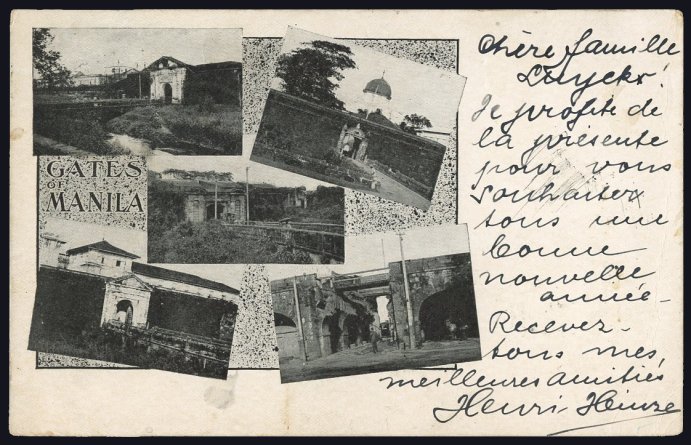 GATES
OF
MANILA
Chère famille
Je profite de
la présente
pour vous
souhaiter
tous une
bonne
nouvelle
année-
Recevez-
tous mes
meilleures amitiés
Henri